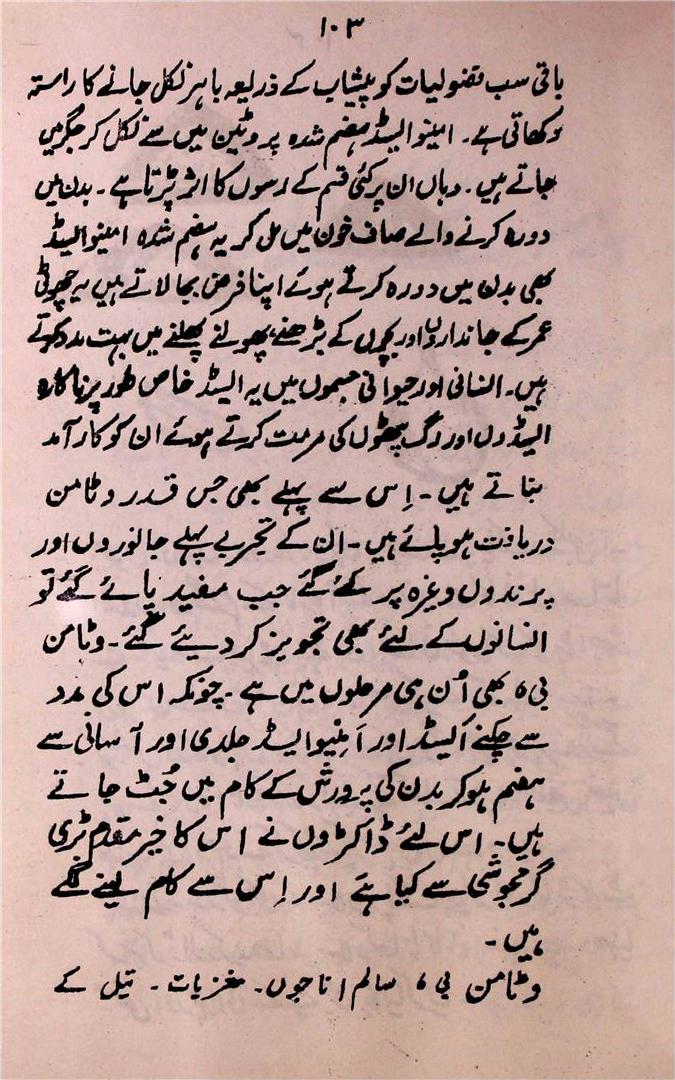 ۱۰۳
باقی سب فضولیات کو پیشاب کے ذریعہ باہر نکل جانے کا راستہ
دکھاتی ہے۔ امینو ایسڈ ہضم شدہ پروٹین میں سے نکل کر جگر میں
جاتے ہیں۔ وہاں ان پر کئی قسم کے رسوں کا اثر پڑتا ہے۔ بدن میں
دورہ کرنے والے صاف خون میں مل کر یہ ہضم شدہ امینو ایسڈ
بھی بدن میں دورہ کرتے ہوئے اپنا فرض بجا لاتے ہیں یہ چھوٹی
عمر کے جانداروں اور بچوں کے بڑھنے، پھولنے پھلنے میں بہت مدد دیتے
ہیں۔ انسانی اور حیوانی جسموں میں یہ ایسڈ خاص طور پر ناکارہ
ایسڈوں اور رگ پٹھوں کی مرمت کرتے ہوئے ان کو کارآمد
بناتے ہیں۔ اِس سے پہلے بھی جس قدر وٹامن
دریافت ہو پائے ہیں۔ ان کے تجربے پہلے جانوروں اور
پرندوں وغیرہ پر کئے گئے جب مفید پائے گئے تو
انسانوں کے لئے بھی تجویز کر دیئے گئے۔ وٹامن
بی ۶ بھی اُن ہی مرحلوں میں ہے۔ چونکہ اس کی مدد
سے چکنے اَیسڈ اور اَمینو ایسڈ جلدی اور آسانی سے
ہضم ہو کر بدن کی پرورش کے کام میں جُٹ جاتے
ہیں۔ اس لئے ڈاکٹروں نے اس کا خیر مقدم بڑی
گرمجوشی سے کیا ہے اور اِس سے کام لینے لگے
ہیں۔
وٹامن بی ۶ سالم اناجوں۔ مغزیات۔ تیل کے